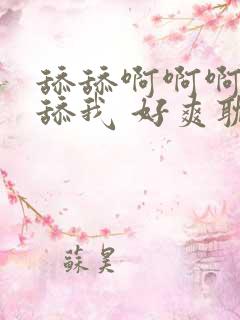 舔舔啊啊啊
舔我 好爽耽
蘇昊